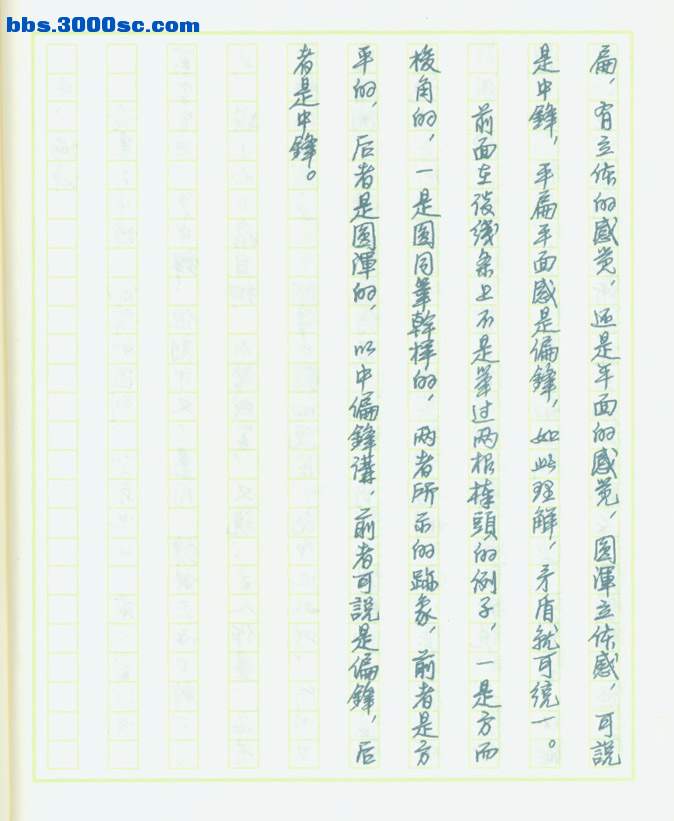 bbs.3000sc.com
扁，有立体的感觉，还是平面的感觉，圆渾立体感，可説
是中鋒，平扁平面感是偏鋒，如此理解，矛盾就可统一。
前面在筱线条上不是举过两根棒頭的例子，一是方而
梭角的，一是圆同筆幹樣的，两者所示的跡象，前者是方
平的，后者是圆渾的，以中偏鋒講，前者可説是偏鋒，后
者是中鋒。